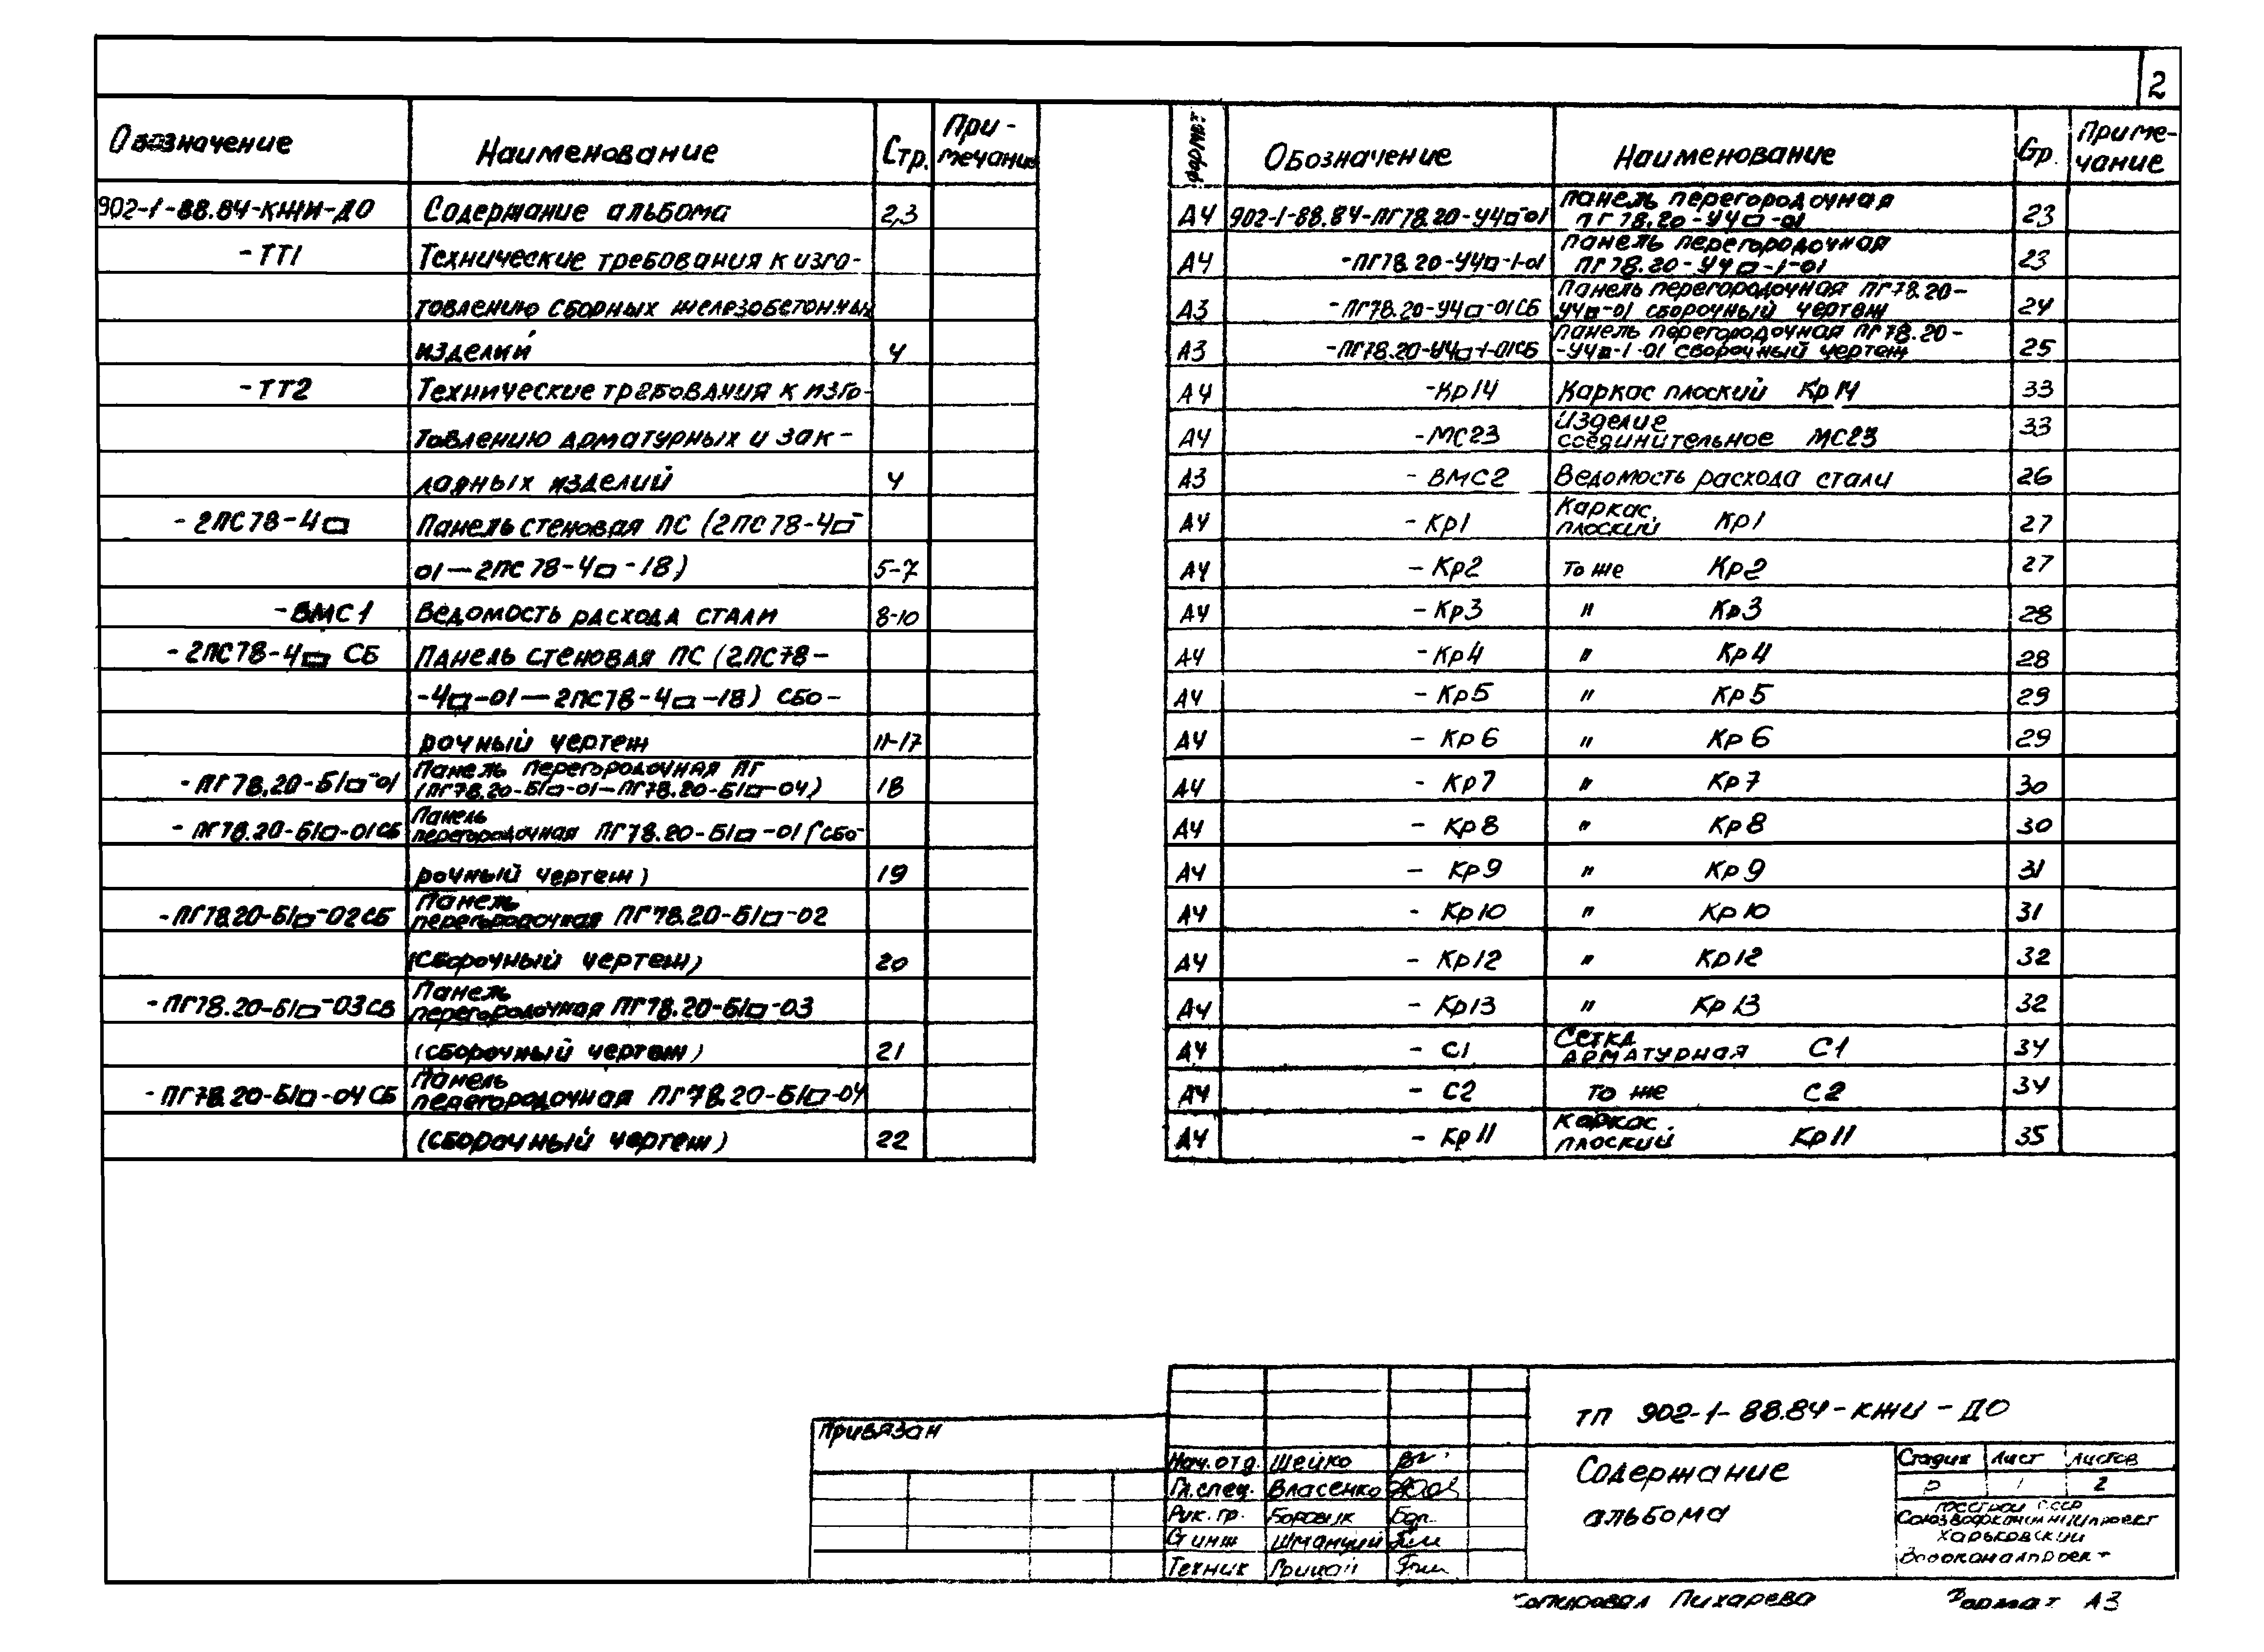 2
Обозначение Наименование Стр. При-
мечание
902-1-88.84-КЖИ-ДО Содержание альбома 2,3
-ТТ1 Технические требования к изго-
товлению сборных железобетонных
изделий 4
-ТТ2 Технические требования к изго-
товлению арматурных и зак-
ладных изделий 4
-2ПС78-4□ Панель стеновая ПС (2ПС78-4□-
01—2ПС78-4□-18) 5-7
-ВМС1 Ведомость расхода стали 8-10
-2ПС78-4□ СБ Панель стеновая ПС (2ПС78-
-4□-01—2ПС78-4□-18) сбо-
рочный чертеж 11-17
-ПГ78.20-Б1□-01 Панель перегородочная ПГ
(ПГ78.20-Б1□-01—ПГ78.20-Б1□-04) 18
-ПГ78.20-Б1□-01СБ Панель
перегородочная ПГ78.20-Б1□-01 (сбо-
рочный чертеж) 19
-ПГ78.20-Б1□-02СБ Панель
перегородочная ПГ78.20-Б1□-02
(сборочный чертеж) 20
-ПГ78.20-Б1□-03СБ Панель
перегородочная ПГ78.20-Б1□-03
(сборочный чертеж) 21
-ПГ78.20-Б1□-04СБ Панель
перегородочная ПГ78.20-Б1□-04
(сборочный чертеж) 22
Формат Обозначение Наименование Стр. Приме-
чание
А4 902-1-88.84-ПГ78.20-У4□-01 панель перегородочная
ПГ78.20-У4□-01 23
А4 -ПГ78.20-У4□-1-01 панель перегородочная
ПГ78.20-У4□-1-01 23
А3 -ПГ78.20-У4□-01СБ Панель перегородочная ПГ78.20-
У4□-01 сборочный чертеж 24
А3 -ПГ78.20-У4□-1-01СБ Панель перегородочная ПГ78.20-
-У4□-1-01 сборочный чертеж 25
А4 -Кр14 Каркас плоский Кр14 33
А4 -МС23 Изделие
соединительное МС23 33
А3 -ВМС2 Ведомость расхода стали 26
А4 -Кр1 Каркас
плоский Кр1 27
А4 -Кр2 то же Кр2 27
А4 -Кр3 " Кр3 28
А4 -Кр4 " Кр4 28
А4 -Кр5 " Кр5 29
А4 -Кр6 " Кр6 29
А4 -Кр7 " Кр7 30
А4 -Кр8 " Кр8 30
А4 -Кр9 " Кр9 31
А4 -Кр10 " Кр10 31
А4 -Кр12 " Кр12 32
А4 -Кр13 " Кр13 32
А4 -С1 Сетка
арматурная С1 34
А4 -С2 то же С2 34
А4 -Кр11 Каркас
плоский Кр11 35
Привязан
Нач.отд. Шейко
Гл.спец. Власенко
Рук.гр. Боровик
Ст инж Шманций
Техник Грицай
ТП 902-1-88.84-КЖИ-ДО
Содержание
альбома
Стадия Лист Листов
Р 1 2
Госстрой СССР
Союзводоканалниипроект
Харьковский
Водоканалпроект
Копировал Пихарева Формат А3